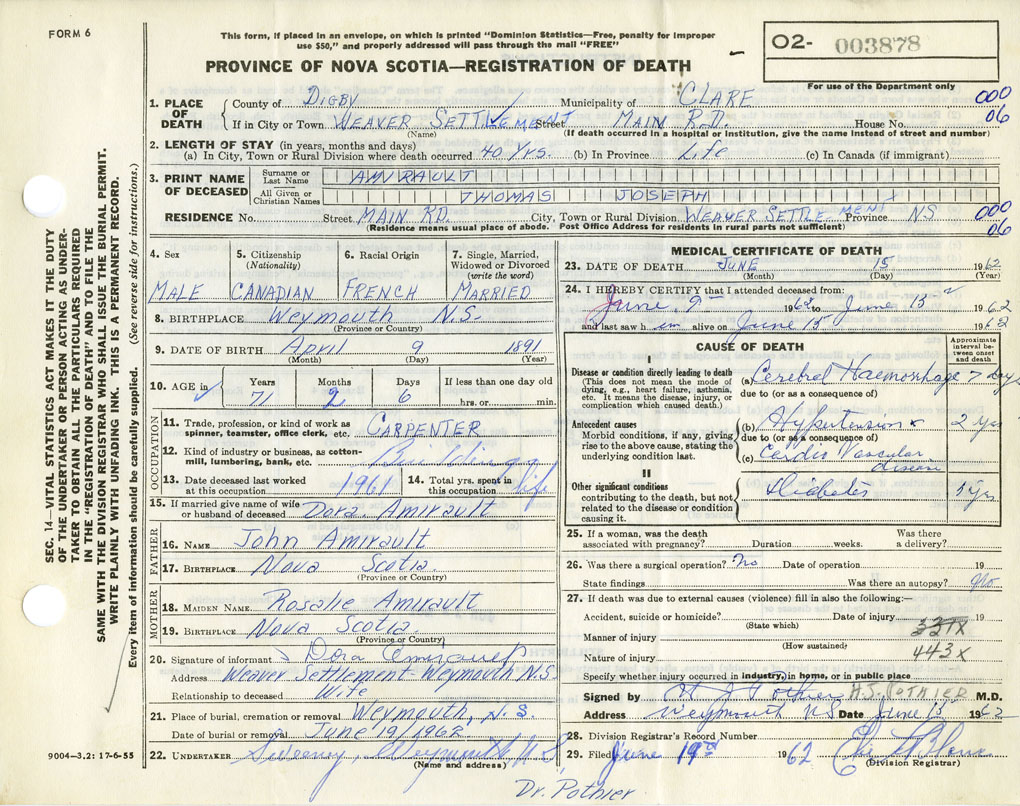 FORM 6
This form, if placed in an envelope, on which is printed "Dominion Statistics—Free, penalty for improper
use $50," and properly addressed will pass through the mail "FREE"
PROVINCE OF NOVA SCOTIA—REGISTRATION OF DEATH
O2- 003878
For use of the Department only
000
06
1. PLACE OF DEATH County of DIGBY Municipality of CLARE
If in City or Town WEAVER SETTLEMENT Street MAIN RD. House No.
(Name) (If death occurred in a hospital or institution, give the name instead of street and number)
2. LENGTH OF STAY (in years, months and days)
(a) In City, Town or Rural Division where death occurred 40 Yrs. (b) In Province Life (c) In Canada (if immigrant)
3. PRINT NAME OF DECEASED Surname or Last Name AMIRAULT
All Given or Christian Names THOMAS JOSEPH
RESIDENCE No. Street MAIN RD. City, Town or Rural Division WEAVER SETTLEMENT Province NS
(Residence means usual place of abode. Post Office Address for residents in rural parts not sufficient)
000
06
4. Sex 5. Citizenship (Nationality) 6. Racial Origin 7. Single, Married, Widowed or Divorced (write the word)
MALE CANADIAN FRENCH MARRIED
8. BIRTHPLACE Weymouth N.S.
(Province or Country)
9. DATE OF BIRTH April 9 1891
(Month) (Day) (Year)
10. AGE in Years Months Days If less than one day old
71 2 6 hrs. or min.
OCCUPATION
11. Trade, profession, or kind of work as spinner, teamster, office clerk, etc. CARPENTER
12. Kind of industry or business, as cotton-mill, lumbering, bank, etc. Building
13. Date deceased last worked at this occupation 1961 14. Total yrs. spent in this occupation life
15. If married give name of wife or husband of deceased Dora Amirault
FATHER
16. NAME John Amirault
17. BIRTHPLACE Nova Scotia
(Province or Country)
MOTHER
18. MAIDEN NAME Rosalie Amirault
19. BIRTHPLACE Nova Scotia
(Province or Country)
20. Signature of informant Dora Amirault
Address Weaver Settlement-Weymouth N.S.
Relationship to deceased Wife
21. Place of burial, cremation or removal Weymouth, N.S.
Date of burial or removal June 19/1962
22. UNDERTAKER Sweeney, Weymouth N S
(Name and address)
MEDICAL CERTIFICATE OF DEATH
23. DATE OF DEATH JUNE 15 1962
(Month) (Day) (Year)
24. I HEREBY CERTIFY that I attended deceased from:
June 9th 1962 to June 15 1962
and last saw him alive on June 15 1962
CAUSE OF DEATH
Approximate interval between onset and death
I
Disease or condition directly leading to death
(This does not mean the mode of dying, e.g., heart failure, asthenia, etc. It means the disease, injury, or complication which caused death.)
(a) Cerebral Haemorrhage 7 days
due to (or as a consequence of)
Antecedent causes
Morbid conditions, if any, giving rise to the above cause, stating the underlying condition last.
(b) Hypertension & 2 yrs
due to (or as a consequence of)
(c) Cardio Vascular
disease
II
Other significant conditions
contributing to the death, but not related to the disease or condition causing it.
Diabetes yrs
25. If a woman, was the death associated with pregnancy? Duration weeks. Was there a delivery?
26. Was there a surgical operation? No Date of operation 19
State findings Was there an autopsy? No
27. If death was due to external causes (violence) fill in also the following:—
Accident, suicide or homicide? Date of injury 19
(State which)
331X
Manner of injury
(How sustained)
443X
Nature of injury
Specify whether injury occurred in industry, in home, or in public place
Signed by H.S. POTHIER M.D.
Address Weymouth NS Date June 15 1962
28. Division Registrar's Record Number
29. Filed June 19th 1962
(Division Registrar)
Dr. Pothier
9004—3.2: 17-6-55
SEC. 14—VITAL STATISTICS ACT MAKES IT THE DUTY
OF THE UNDERTAKER OR PERSON ACTING AS UNDER-
TAKER TO OBTAIN ALL THE PARTICULARS REQUIRED
IN THE "REGISTRATION OF DEATH" AND TO FILE THE
SAME WITH THE DIVISION REGISTRAR WHO SHALL ISSUE THE BURIAL PERMIT.
WRITE PLAINLY WITH UNFADING INK. THIS IS A PERMANENT RECORD.
Every item of information should be carefully supplied. (See reverse side for instructions.)